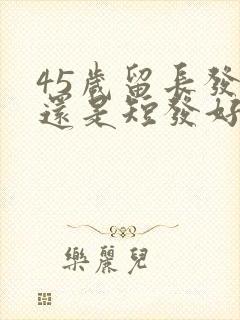 45歲留長發
還是短發好
樂麗兒